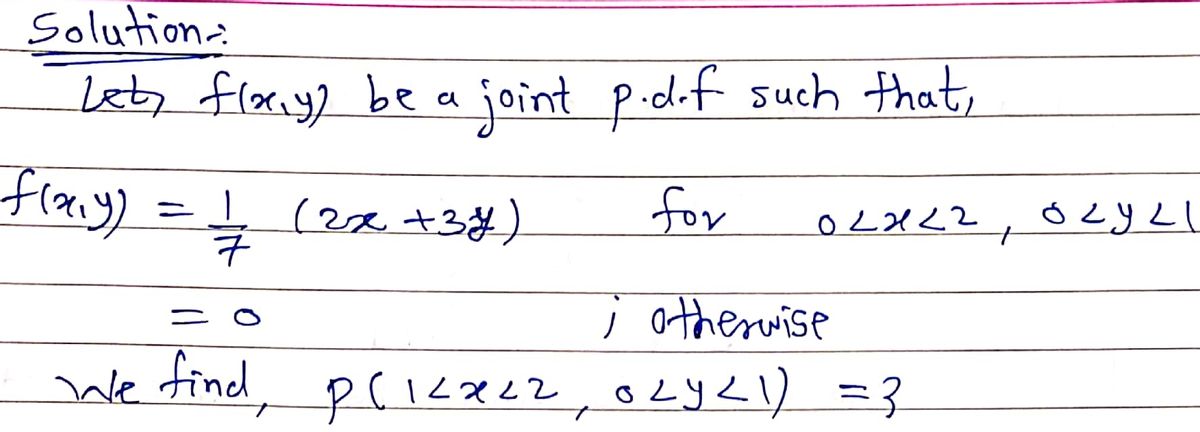 Solution:
Let, f(x,y) be a joint p.d.f such that,
f(x,y) = 1/7 (2x + 3y) for 0<x<2, 0<y<1
= 0 ; otherwise
We find, P(1<x<2, 0<y<1) = ?